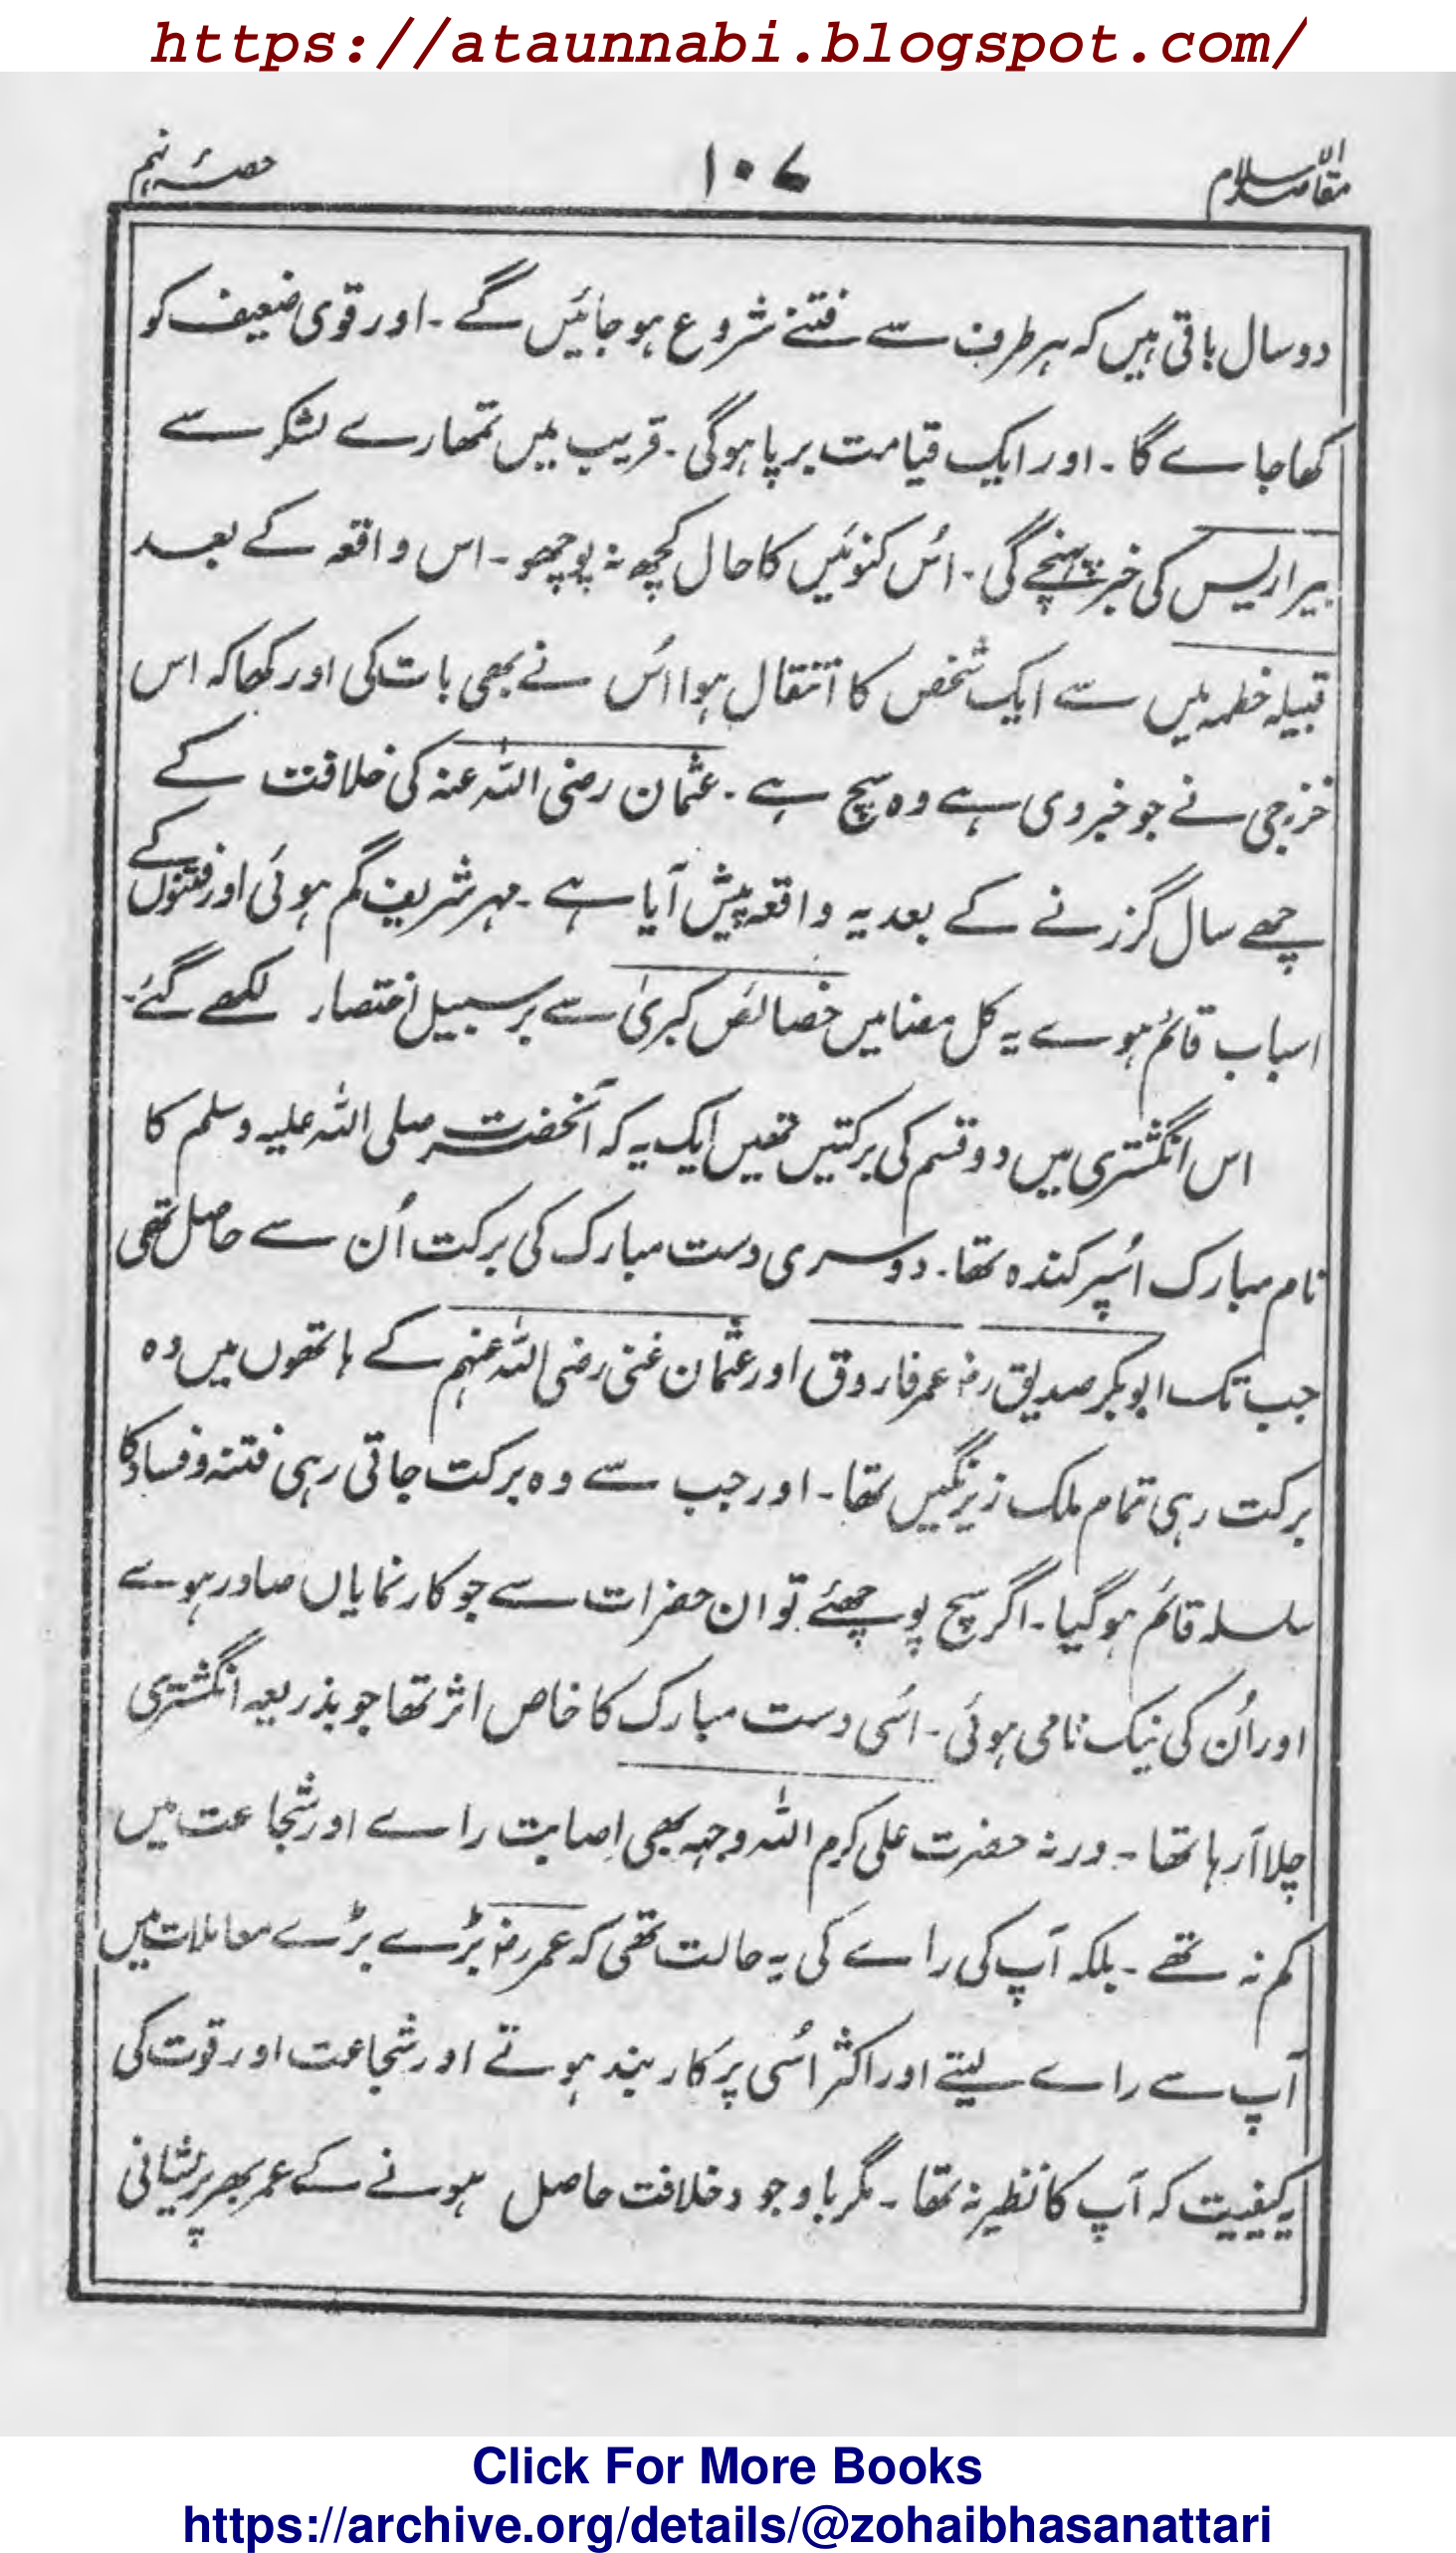 https://ataunnabi.blogspot.com/
مقاصد الاسلام
۱۰۷
حصۂ نہم
دو سال باقی ہیں کہ ہر طرف سے فتنے شروع ہو جائیں گے ۔ اور قوی ضعیف کو
کھا جاے گا ۔ اور ایک قیامت برپا ہوگی ۔ قریب میں تمھارے لشکر سے
بیر اریس کی خبر پہنچے گی ۔ اُس کنوئیں کا حال کچھ نہ پوچھو ۔ اس واقعہ کے بعد
قبیلہ خطمہ میں سے ایک شخص کا انتقال ہوا اُس نے بھی بات کی اور کہا کہ اس
خزرجی نے جو خبر دی ہے وہ سچ ہے ۔ عثمان رضی اللہ عنہ کی خلافت کے
چھے سال گزرنے کے بعد یہ واقعہ پیش آیا ہے ۔ مہر شریف گم ہوئی اور فتنوں کے
اسباب قائم ہوے یہ کل مضامیں خصائص کبریٰ سے بر سبیل اختصار لکھے گئے ۔
اس انگشتری میں دو قسم کی برکتیں تھیں ایک یہ کہ آنحضرت صلی اللہ علیہ وسلم کا
نام مبارک اُسپر کندہ تھا ۔ دوسری دست مبارک کی برکت اُن سے حاصل تھی
جب تک ابوبکر صدیق رضہ عمر فاروق اور عثمان غنی رضی اللہ عنہم کے ہاتھوں میں وہ
برکت رہی تمام ملک زیر نگیں تھا ۔ اور جب سے وہ برکت جاتی رہی فتنہ و فساد کا
سلسلہ قائم ہوگیا ۔ اگر سچ پوچھئے تو ان حضرات سے جو کار نمایاں صادر ہوے
اور اُن کی نیک نامی ہوئی ۔ اُسی دست مبارک کا خاص اثر تھا جو بذریعہ انگشتری
چلا آرہا تھا ۔ ورنہ حضرت علی کرم اللہ وجہہ بھی اِصابت راے اور شجاعت میں
کم نہ تھے ۔ بلکہ آپ کی راے کی یہ حالت تھی کہ عمر رضہ بڑے بڑے معاملات میں
آپ سے راے لیتے اور اکثر اُسی پر کاربند ہوتے اور شجاعت اور قوت کی
یہ کیفیت کہ آپ کا نظیر نہ تھا ۔ مگر باوجود خلافت حاصل ہونے کے عمر بھر پریشانی
Click For More Books
https://archive.org/details/@zohaibhasanattari